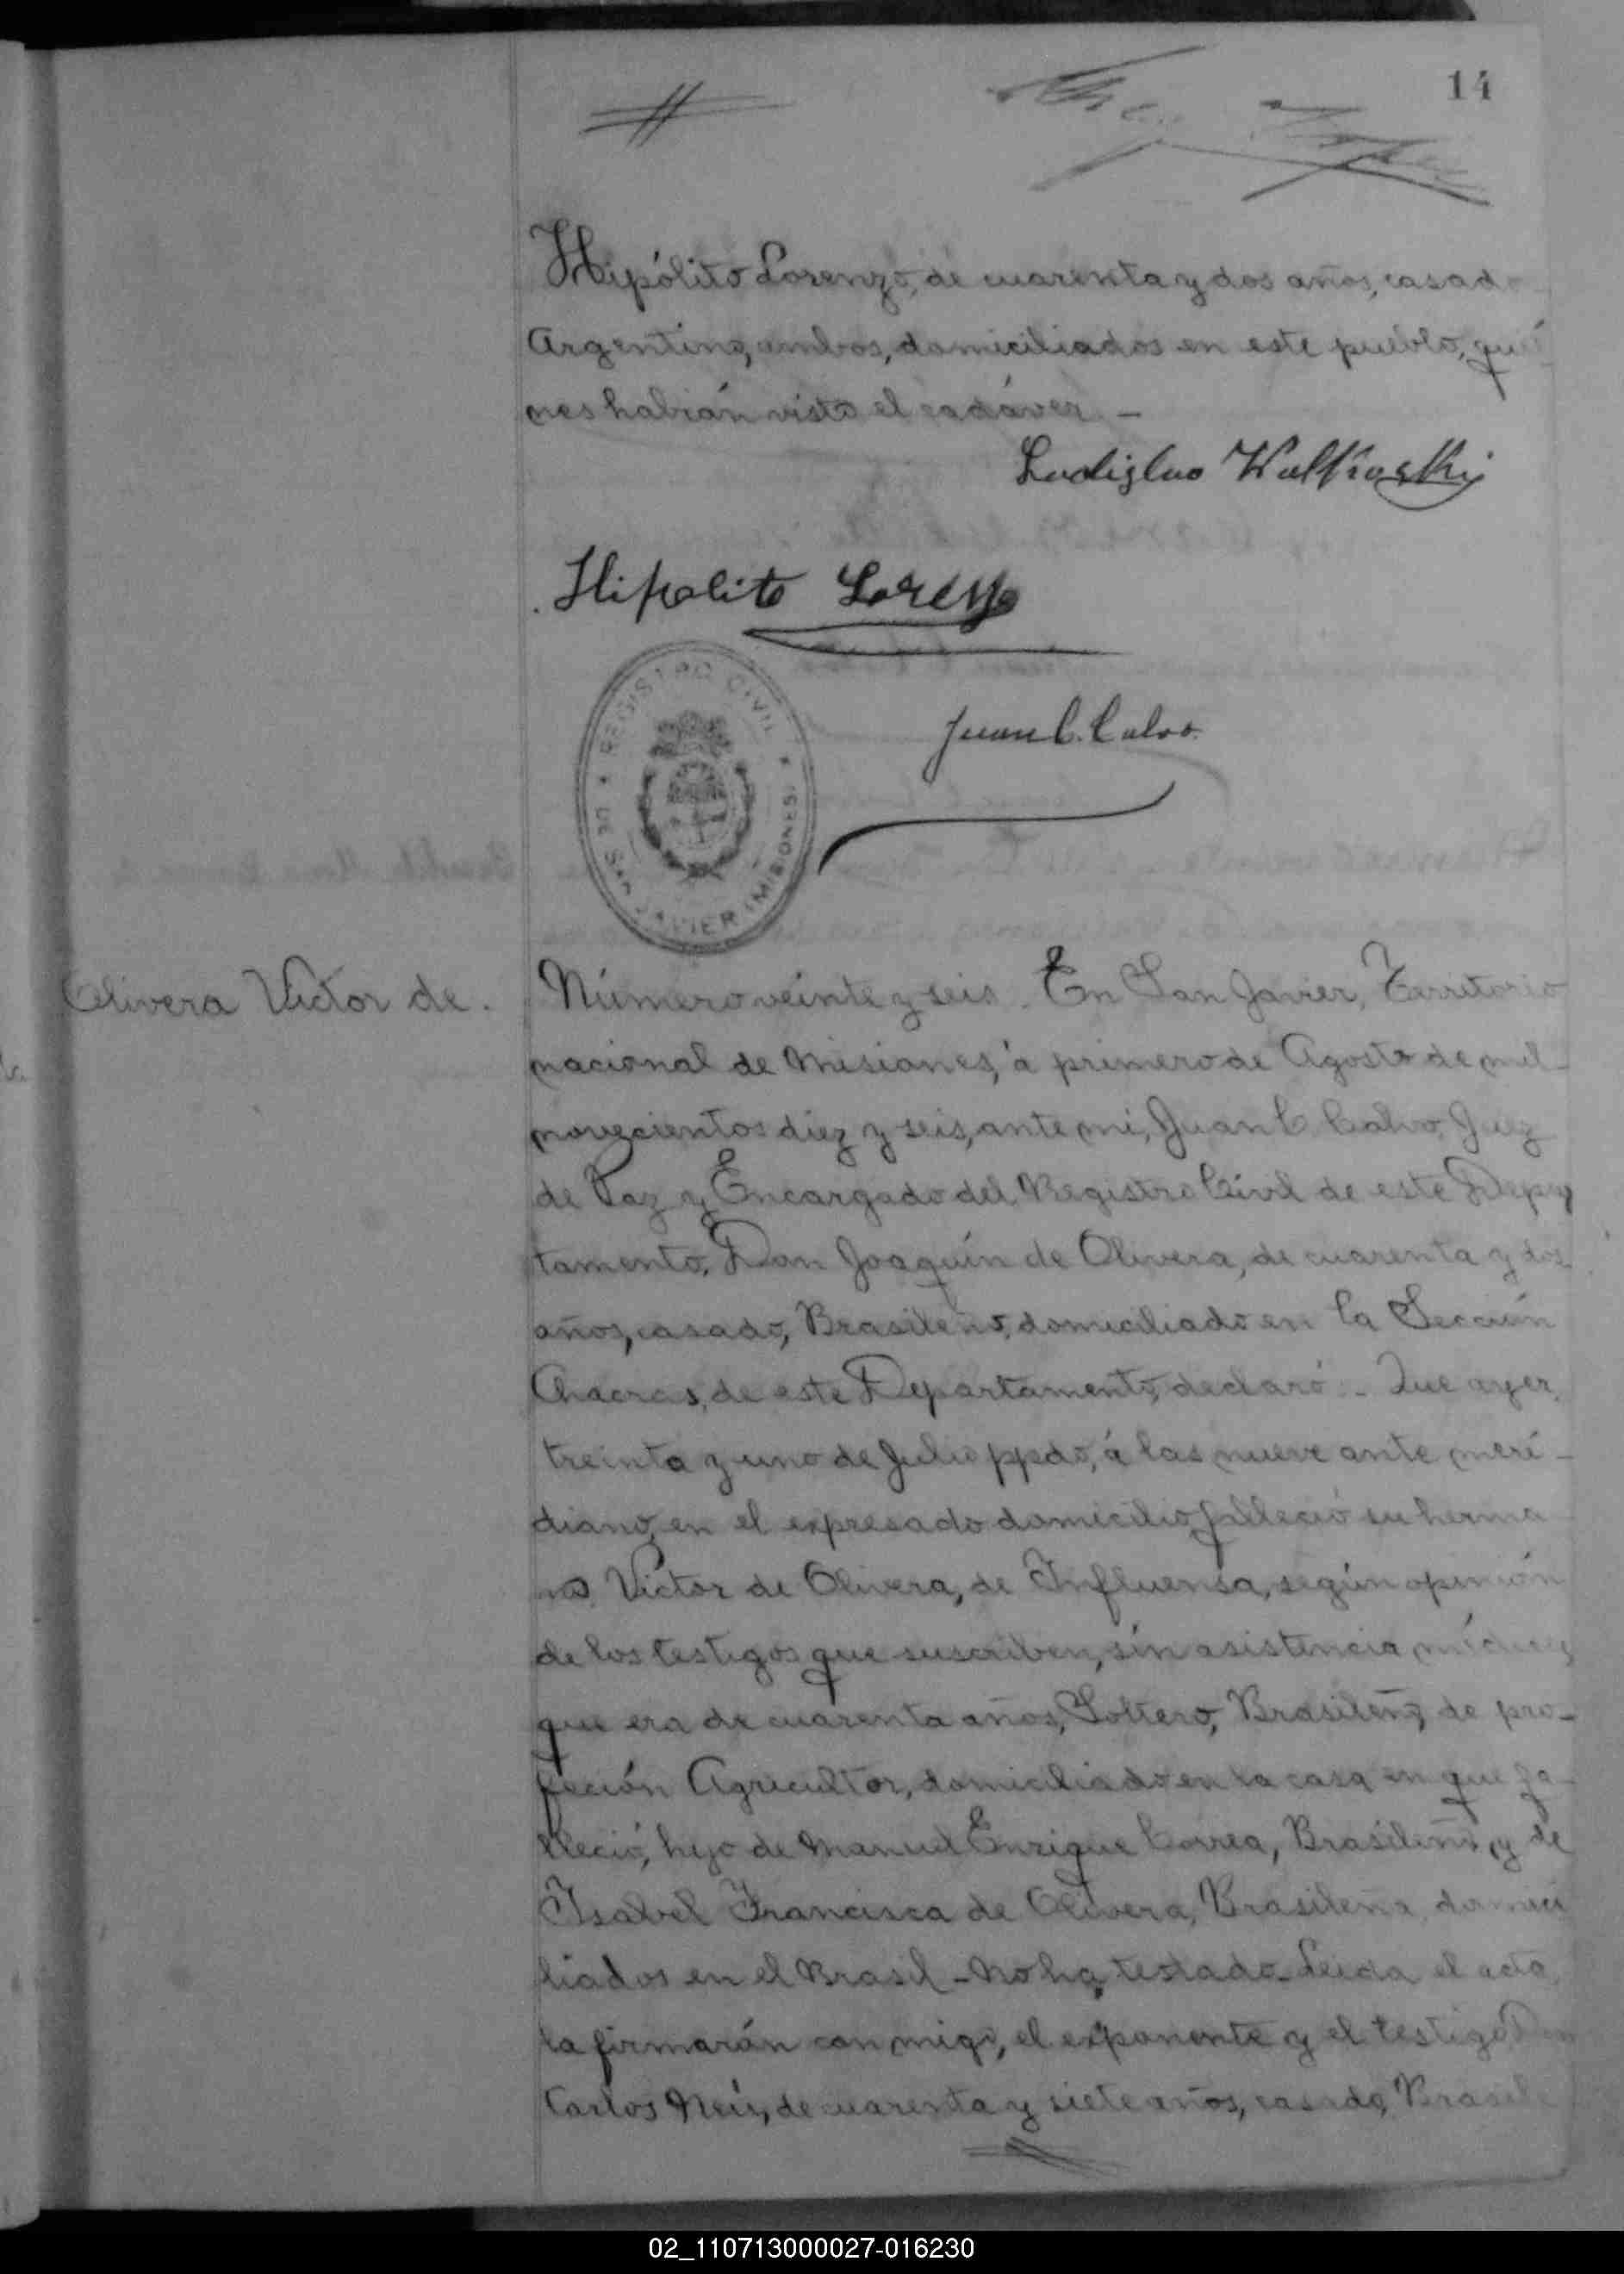 14
Hipólito Lorenzo, de cuarenta y dos años, casado
Argentino, ambos, domiciliados en este pueblo, quié
nes habián visto el cadáver. —
Ladislao
Hipolito Lorenzo
REGISTRO CIVIL
DE SAN JAVIER (MISIONES)
Juan C. Calvo.
Olivera Victor de.
Número veinte y seis. En San Javier, Territorio
nacional de Misiones, á primero de Agosto de mil
novecientos diez y seis, ante mi, Juan C. Calvo, Juez
de Paz y Encargado del Registro Civil de este Depar
tamento, Don Joaquín de Olivera, de cuarenta y dos
años, casado, Brasileño, domiciliado en la Sección
Chacras, de este Departamento, declaró:- Que ayer,
treinta y uno de Julio ppdo, á las nueve ante meri-
diano, en el expresado domicilio, falleció su herma
no Victor de Olivera, de Influensa, según opinión
de los testigos que suscriben, sín asistencia médica,
que era de cuarenta años, Soltero, Brasileño, de pro-
feción Agricultor, domiciliado en la casa en que fa-
lleció, hijo de Manuel Enrique Correa, Brasileño, y de
Isabel Francisca de Olivera, Brasileña, domici
liados en el Brasil - No ha testado - Leida el acta,
la firmarán con migo, el exponente y el testigo Don
Carlos de cuarenta y siete años, casado, Brasile
02_110713000027-016230